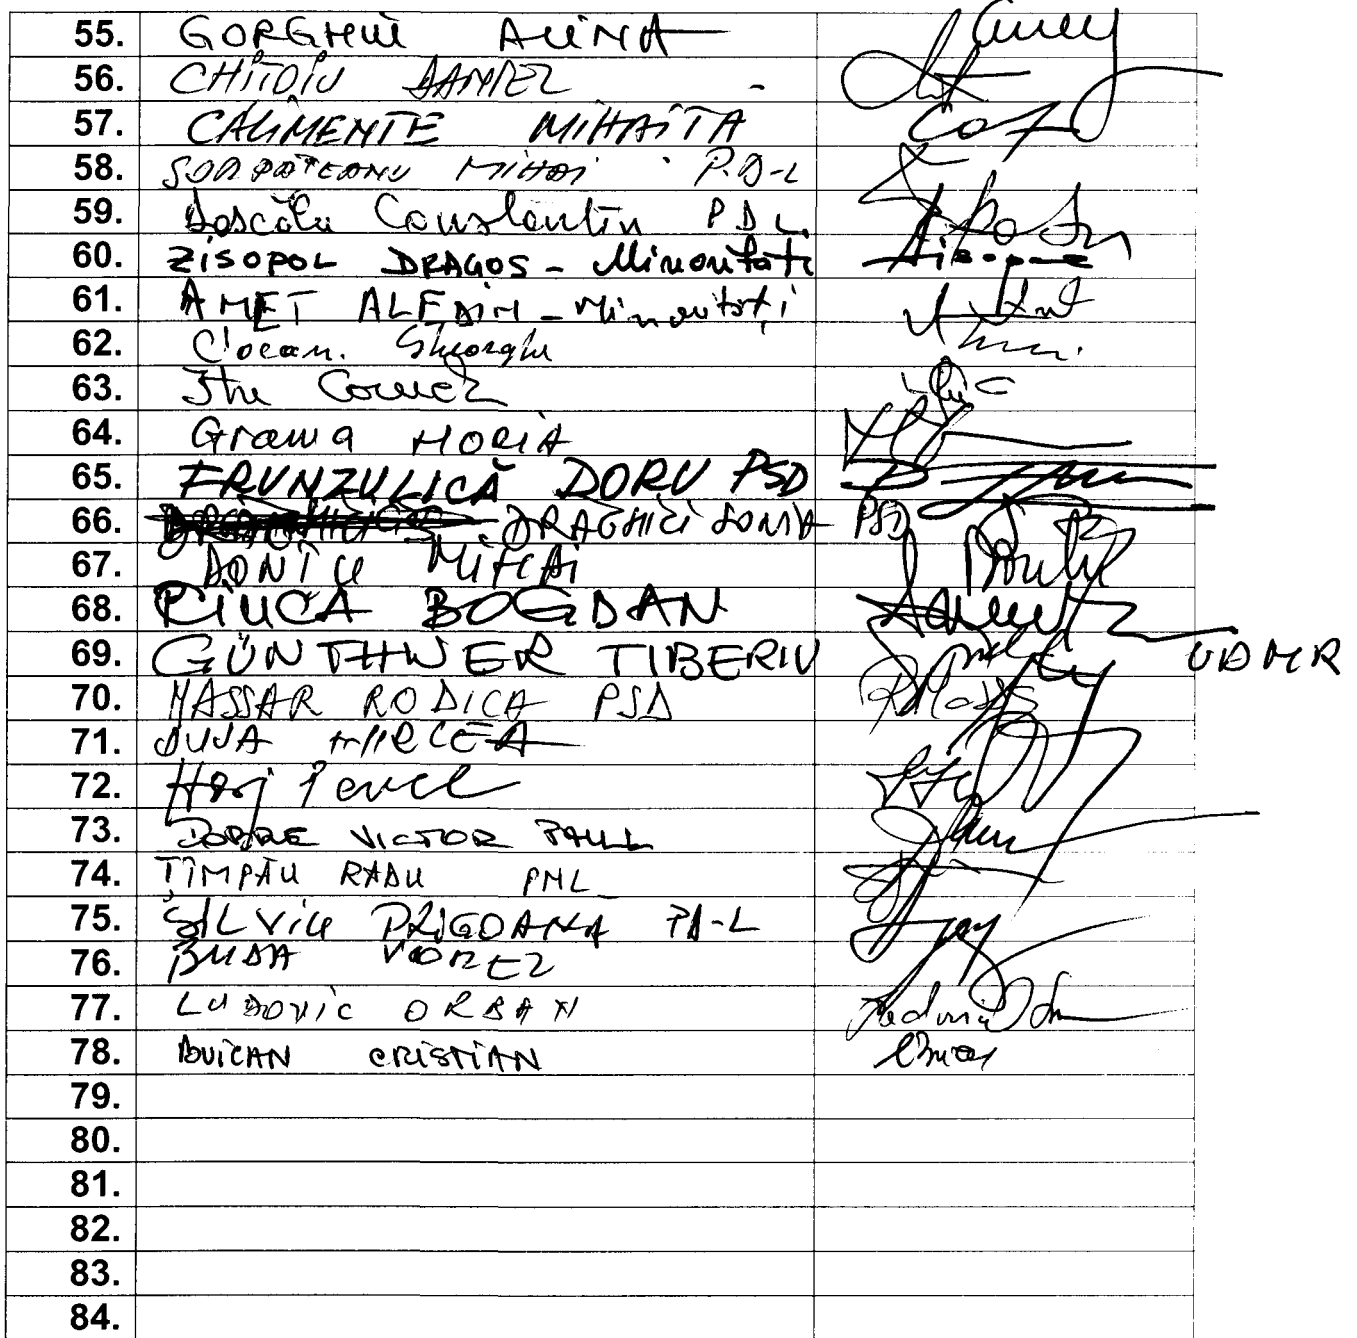 55. GORGHIU ALINA
56. CHIȚOIU DANIEL -
57. CALIMENTE MIHĂIȚĂ
58. MIHAI P.D-L
59. Dascălu Constantin PDL
60. ZISOPOL DRAGOS - Minoritati
61. AMET ALEDIN - Minorități
62. Ciocan. Gheorghe
63. Itu Cornel
64. Grama HORIA
65. FRUNZULICĂ DORU PSD
66. DRAGHICI SONIA PSD
67. DONȚU MIHAI
68. CIUCA BOGDAN
69. GÜNTHNER TIBERIU UDMR
70. NASSAR RODICA PSD
71. DUȘA MIRCEA
72. Horj Pavel
73. DOBRE VICTOR PAUL
74. ȚÎMPĂU RADU PNL
75. SILVIU PRIGOANĂ PD-L
76. BUDA VIOREL
77. LUDOVIC ORBAN
78. BUICAN CRISTIAN
79.
80.
81.
82.
83.
84.